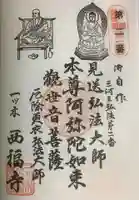 第一二番
御自作
三河新四国第十二番
見送弘法大師
本尊阿弥陀如来
観世音菩薩
厄除
弘法大師
一ツ木
西福寺